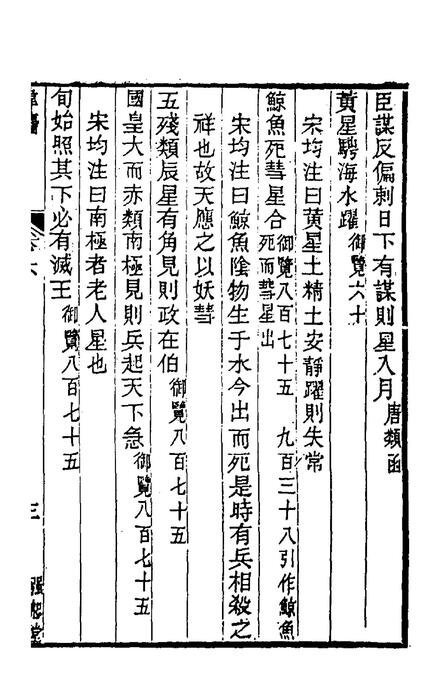 臣謀反偏刺日下有謀則星入月唐類函
黃星騁海水躍御覽六十
宋均注曰黃星土精土安靜躍則失常
鯨魚死彗星合御覽八百七十五　九百三十八引作鯨魚死而彗星出
宋均注曰鯨魚陰物生于水今出而死是時有兵相殺之
祥也故天應之以妖彗
五殘類辰星有角見則政在伯御覽八百七十五
國皇大而赤類南極見則兵起天下急御覽八百七十五
宋均注曰南極者老人星也
旬始照其下必有滅王御覽八百七十五
三